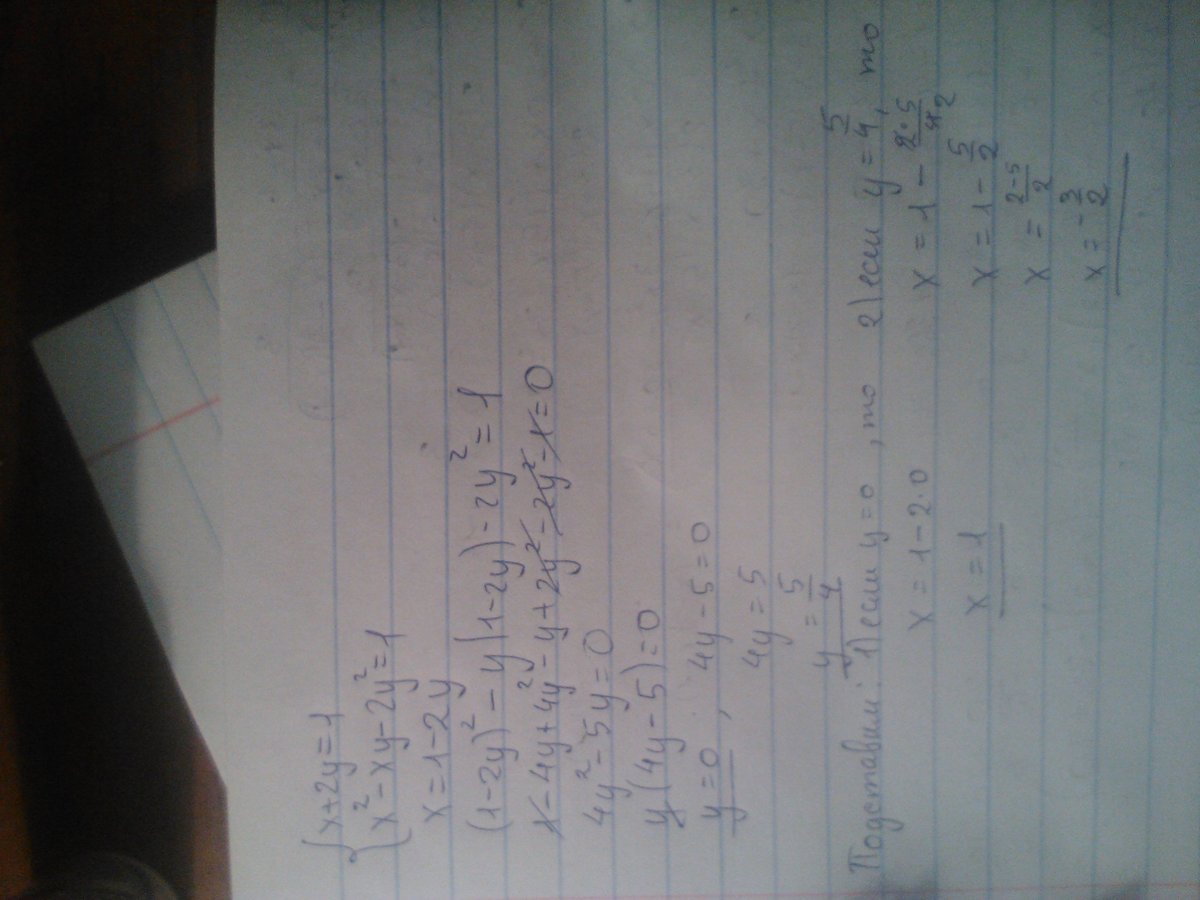 { x+2y=1
x²-xy-2y²=1
x=1-2y
(1-2y)²-y(1-2y)-2y²=1
1-4y+4y²-y+2y²-2y²-1=0
4y²-5y=0
y(4y-5)=0
y=0, 4y-5=0
4y=5
y=5/4
Подставим: 1) если y=0, то 2) если y=5/4, то
x=1-2·0 x=1-2·5/4 2
x=1 x=1-5/2
x=2-5/2
x=-3/2